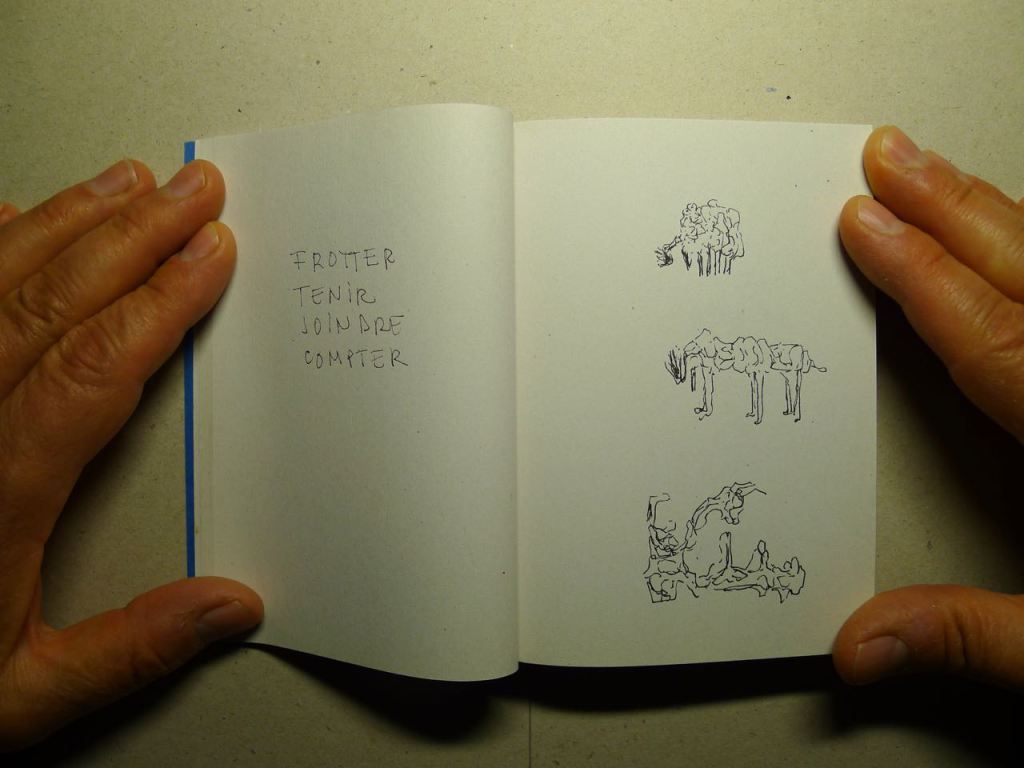 FROTTER
TENIR
JOINDRE
COMPTER